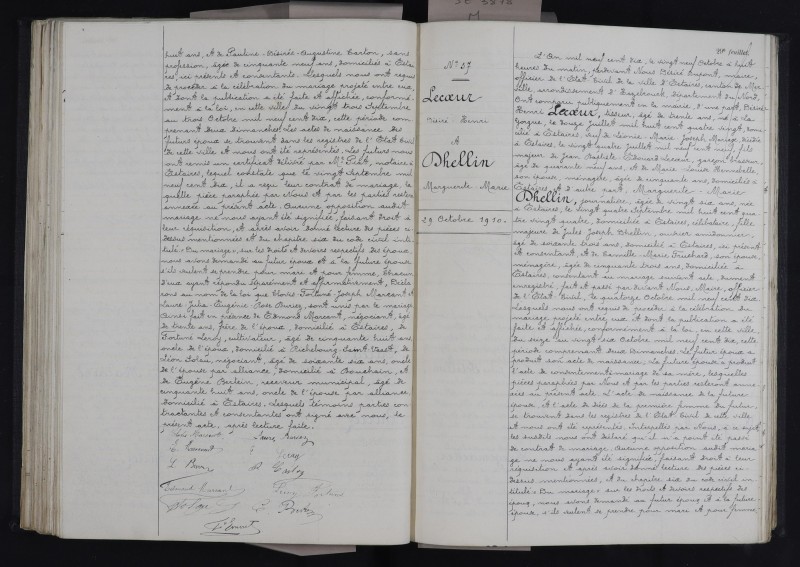 huit ans, et de Pauline-Désirée-Augustine Carlon, sans
profession, âgée de cinquante neuf ans, domiciliés à Estai-
res, ici présents et consentants. Lesquels nous ont requis
de procéder à la célébration du mariage projeté entre eux,
et dont la publication a été faite et affichée, conformé-
ment à la loi, en cette ville du vingt trois Septembre
au trois Octobre mil neuf cent dix, cette période com-
prenant deux Dimanches. Les actes de naissance des
futurs époux se trouvent dans les registres de l'Etat Civil
de cette ville et nous ont été représentés. Les futurs nous
ont remis un certificat délivré par Mr notaire à
Estaires, lequel constate que le vingt Septembre mil
neuf cent dix, il a reçu leur contrat de mariage, la-
quelle pièce paraphée par Nous et par les parties restera
annexée au présent acte. Aucune opposition audit
mariage ne nous ayant été signifiée, faisant droit à
leur réquisition, et après avoir donné lecture des pièces ci-
dessus mentionnées et du chapitre six du code civil inti-
tulé: Du mariage, sur les droits et devoirs respectifs des époux,
nous avons demandé au futur époux et à la future épouse
s'ils veulent se prendre pour mari et pour femme. Chacun
d'eux ayant répondu séparément et affirmativement, Décla-
rons au nom de la loi que Fortuné Joseph Marcant et
Laure Julia Eugénie Rose Buriez, sont unis par le mariage.
Ainsi fait en présence de Edmond Marcant, négociant, âgé
de trente ans, frère de l'époux, domicilié à Estaires, de
Fortuné Leroy, cultivateur, âgé de cinquante huit ans,
oncle de l'époux, domicilié à Richebourg-Saint-Vaast, de
Léon négociant, âgé de soixante six ans, oncle
de l'épouse par alliance, domicilié à Bouchain, et
de Eugène Berlein, receveur municipal, âgé de
cinquante huit ans, oncle de l'épouse par alliance,
domicilié à Estaires. Lesquels témoins, parties con-
tractantes et consentantes ont signé avec nous, le
présent acte, après lecture faite.
Marcant Laure Buriez
Leroy
L Buriez Carlon
Edmond Marcant
Buriez
Dupont
N° 57
Lecœur
Désiré Henri
et
Dhellin
Marguerite Marie
29 Octobre 1910.
feuillet
L'An mil neuf cent dix, le vingt neuf Octobre à huit
heures du matin, pardevant Nous Désiré Dupont, maire,
officier de l'Etat Civil de la ville d'Estaires, canton de Mer-
ville, arrondissement d'Hazebrouck, département du Nord,
Ont comparu publiquement en la mairie, d'une part, Désiré
Henri Lecœur, tisseur, âgé de trente ans, né à La
Gorgue, le douze Juillet mil huit cent quatre vingt, domi-
cilié à Estaires, veuf de Léonie Marie Joseph décédée
à Estaires, le vingt quatre Juillet mil neuf cent neuf, fils
majeur de Jean Baptiste Edouard Lecœur, garçon brasseur,
âgé de quarante neuf ans, et de Marie Louise Hennebelle,
son épouse, ménagère, âgée de cinquante ans, domiciliés à
Estaires, et d'autre part, Marguerite-Marie
Dhellin, journalière, âgée de vingt six ans, née
à Estaires, le vingt quatre Septembre mil huit cent qua-
tre vingt quatre, domiciliée à Estaires, célibataire, fille
majeure de Jules Joseph Dhellin, ouvrier
âgé de soixante trois ans, domicilié à Estaires, ici présent
et consentant, et de Marie son épouse,
ménagère, âgée de cinquante trois ans, domiciliée à
Estaires, consentant au mariage suivant acte, dûment
enregistré, fait et passé par devant Nous, Maire, officier
de l'Etat Civil, le quatorze Octobre mil neuf cent dix.
Lesquels nous ont requis de procéder à la célébration du
mariage projeté entre eux et dont la publication a été
faite et affichée, conformément à la loi, en cette ville,
du seize au vingt six Octobre mil neuf cent dix, cette
période comprenant deux Dimanches. Le futur époux a
produit son acte de naissance. La future épouse a produit
l'acte de consentement à mariage de sa mère, lesquelles
pièces paraphées par Nous et par les parties resteront anne-
xées au présent acte. L'acte de naissance de la future
épouse et l'acte de décès de la première femme du futur,
se trouvent dans les registres de l'Etat Civil de cette ville
et nous ont été représentés. Interpellés par Nous, à ce sujet,
les susdits nous ont déclaré qu'il n'a point été passé
de contrat de mariage. Aucune opposition audit maria-
ge ne nous ayant été signifiée, faisant droit à leur
réquisition et après avoir donné lecture des pièces ci-
dessus mentionnées, et du chapitre six du code civil in-
titulé: Du mariage, sur les droits et devoirs respectifs des
époux, nous avons demandé au futur époux et à la future
épouse, s'ils veulent se prendre pour mari et pour femme.